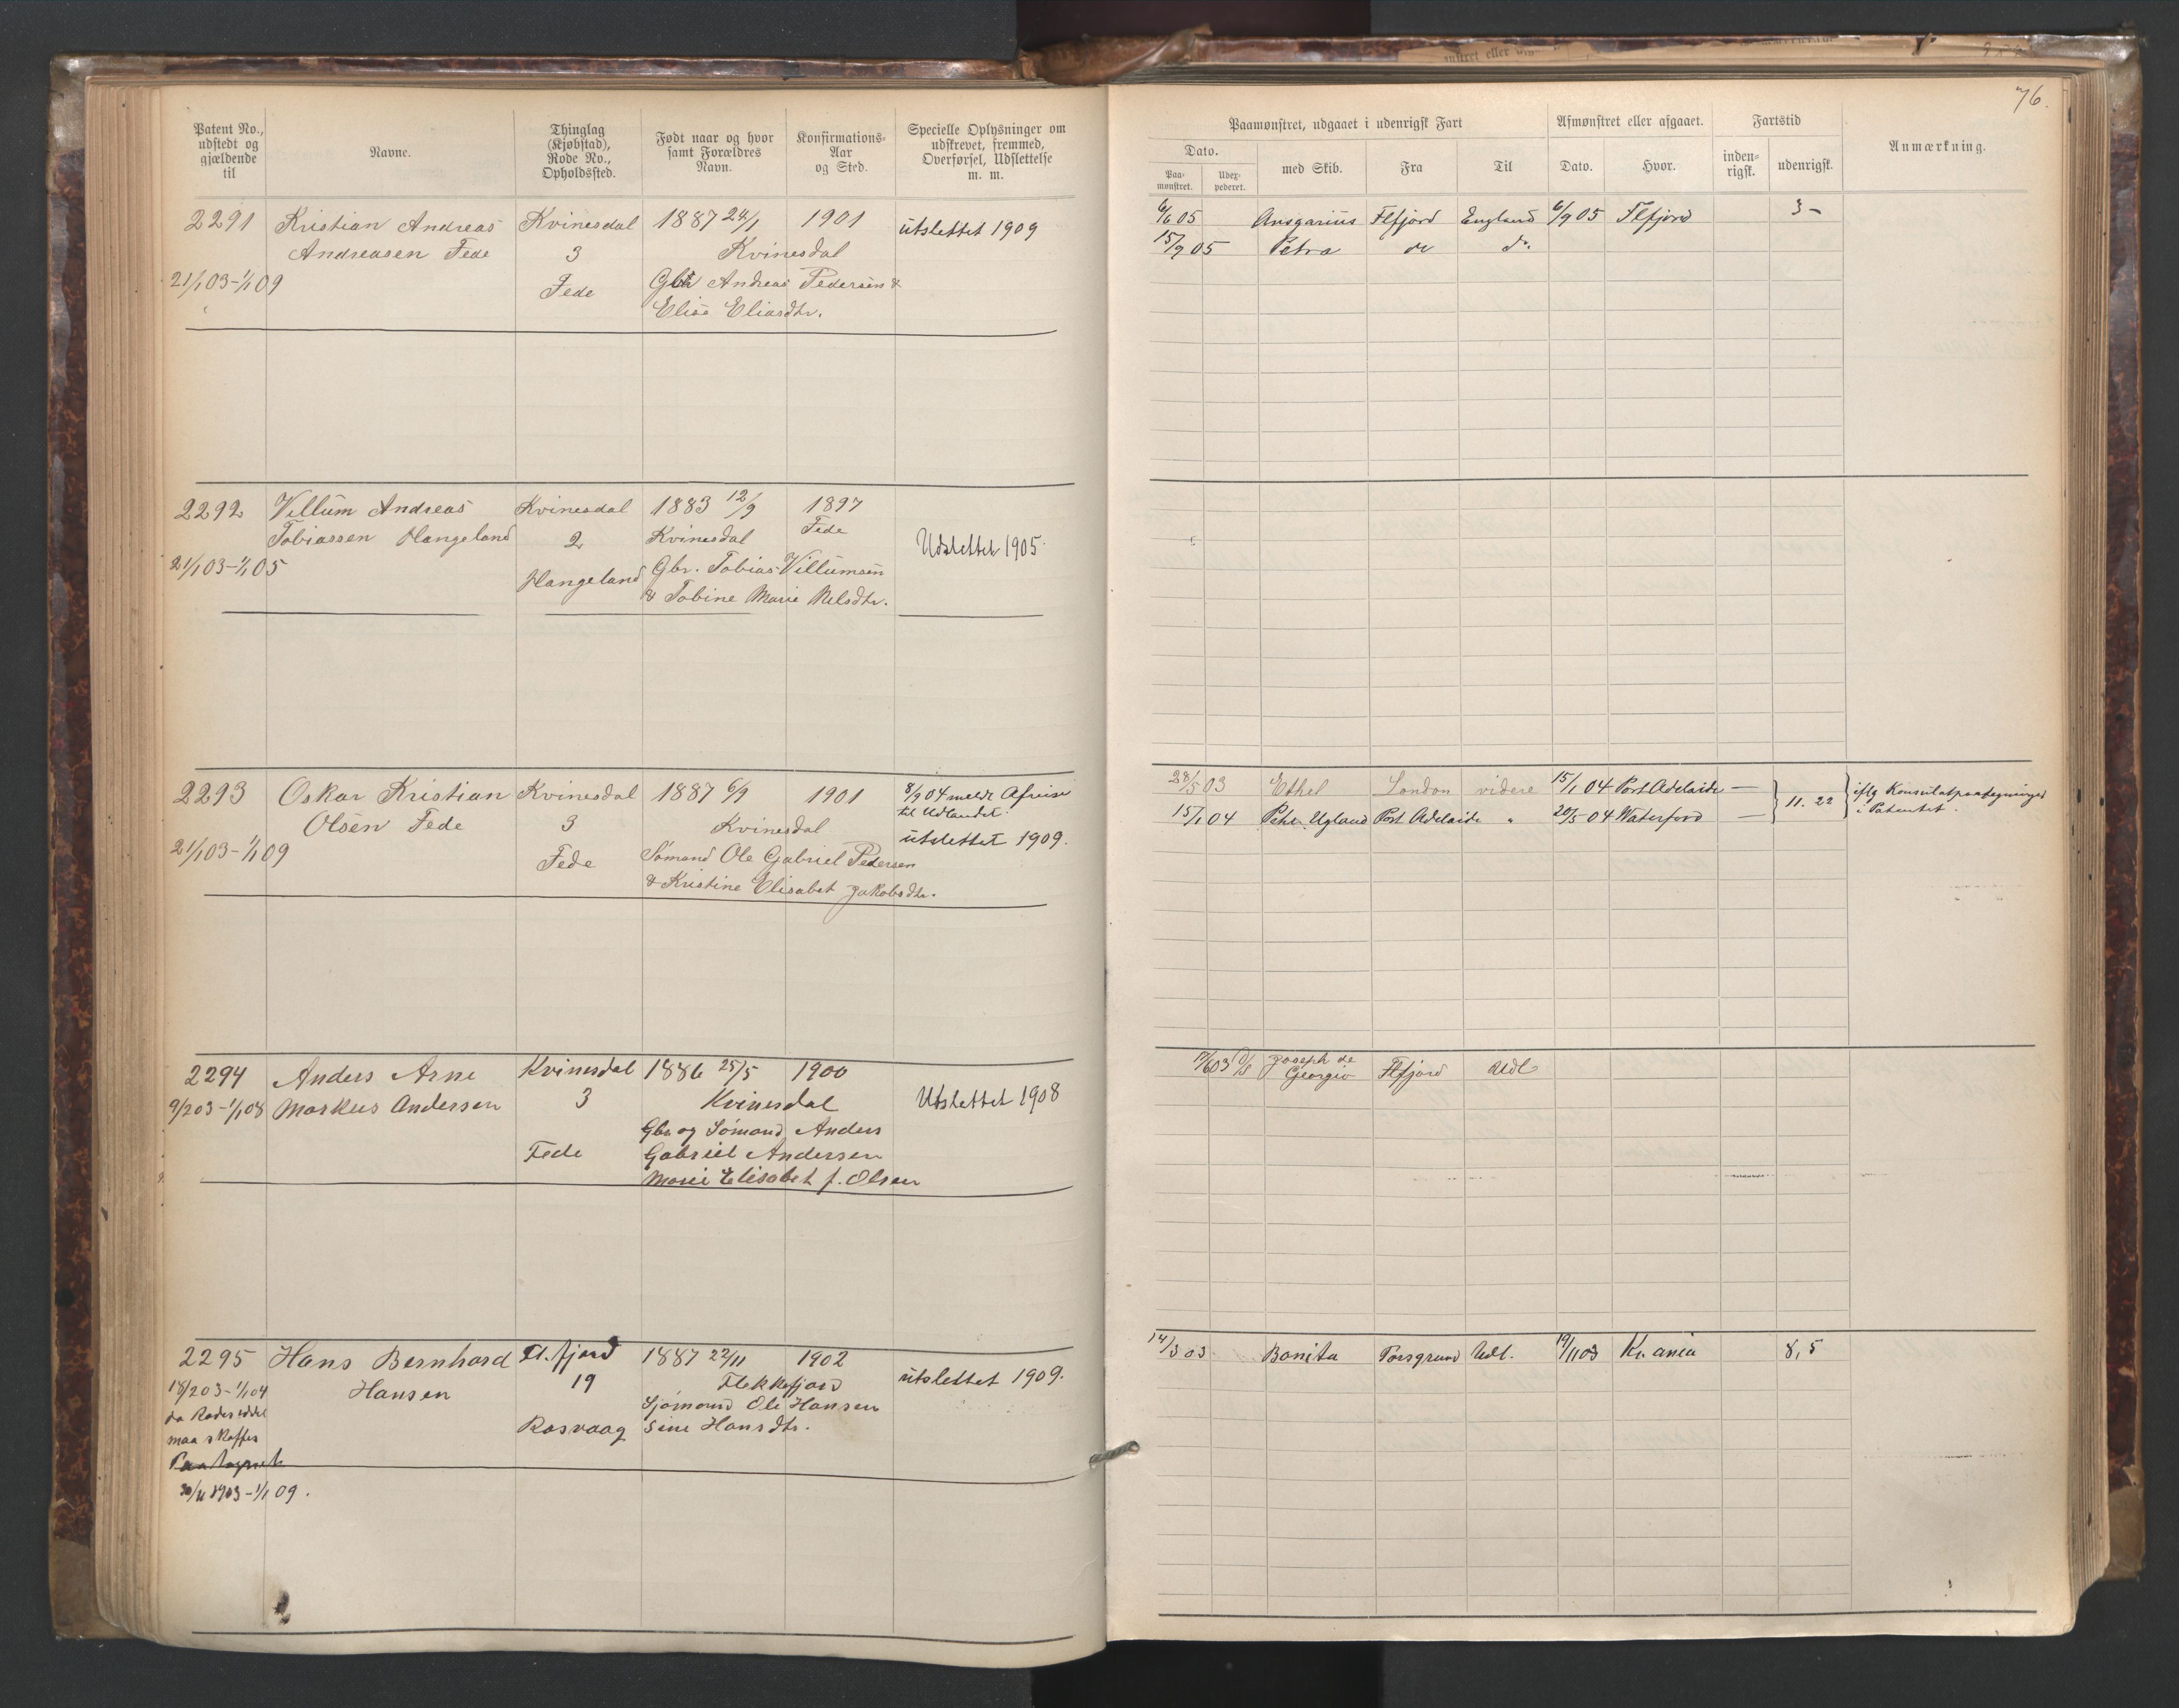 76.
Patent No., udstedt og gjældende til
Navne.
Thinglag (Kjøbstad), Rode No., Opholdssted.
Født naar og hvor samt Forældres Navn.
Konfirmations-Aar og Sted.
Specielle Oplysninger om udskrevet, fremmed, Overførsel, Udslettelse m. m.
Paamønstret, udgaaet i udenrigsk Fart
Afmønstret eller afgaaet.
Fartstid
Anmærkning.
Dato.
Paa-mønstret.
Udex-pederet.
med Skib.
Fra
Til
Dato.
Hvor.
inden-rigsk.
udenrigsk.
2291 Kristian Andreas Kvinesdal 1887 24/1 1901 utslettet 1909
Andreasen Fede 3 Kvinesdal
21/1 03-1/1 09 Fede Gbr Andreas Pedersen &
Elise Eliasdtr.
6/6 05 Ansgarius Flfjord England 6/9 05 Flfjord 3 -
15/9 05 Petra do do
2292 Villum Andreas Kvinesdal 1883 12/9 1897
Tobiassen Hangeland 2 Kvinesdal Fede Udslettet 1905.
21/1 03-1/1 05 Hangeland Gbr. Tobias Villumsen
& Tobine Marie Nelsdtr.
2293 Oskar Kristian Kvinesdal 1887 6/9 1901 8/9 04 meldt Afreise
Olsen Fede 3 Kvinesdal til Udlandet.
21/1 03-1/1 09 Fede Sømand Ole Gabriel Pedersen utslettet 1909.
& Kristine Elisabet Jakobsdtr.
28/5 03 Ethel London videre 15/1 04 Port Adelaide — } 11. 22 { iflg Konsulatpaategninger
15/1 04 Peter Ugland Port Adelaide " 20/5 04 Waterford — i Patentet.
2294 Anders Arne Kvinesdal 1886 25/5 1900
9/2 03-1/1 08 Markus Andersen 3 Kvinesdal Utslettet 1908
Gbr og Sømand Anders
Fede Gabriel Andersen
Marie Elisabet f. Olsen
17/6 03 D/S Joseph de
Georgio Flfjord Udl
2295 Hans Bernhard Fl.fjord 1887 22/11 1902
18/2 03-1/1 04 Hansen 19 Flekkefjord utslettet 1909.
da Rodeseddel Sjømand Ole Hansen
maa skaffes Rasvaag Sine Hansdtr.
Paategnet
30/11 1903-1/1 09.
14/3 03 Bonita Porsgrund Udl. 19/11 03 Kr.ania 8, 5